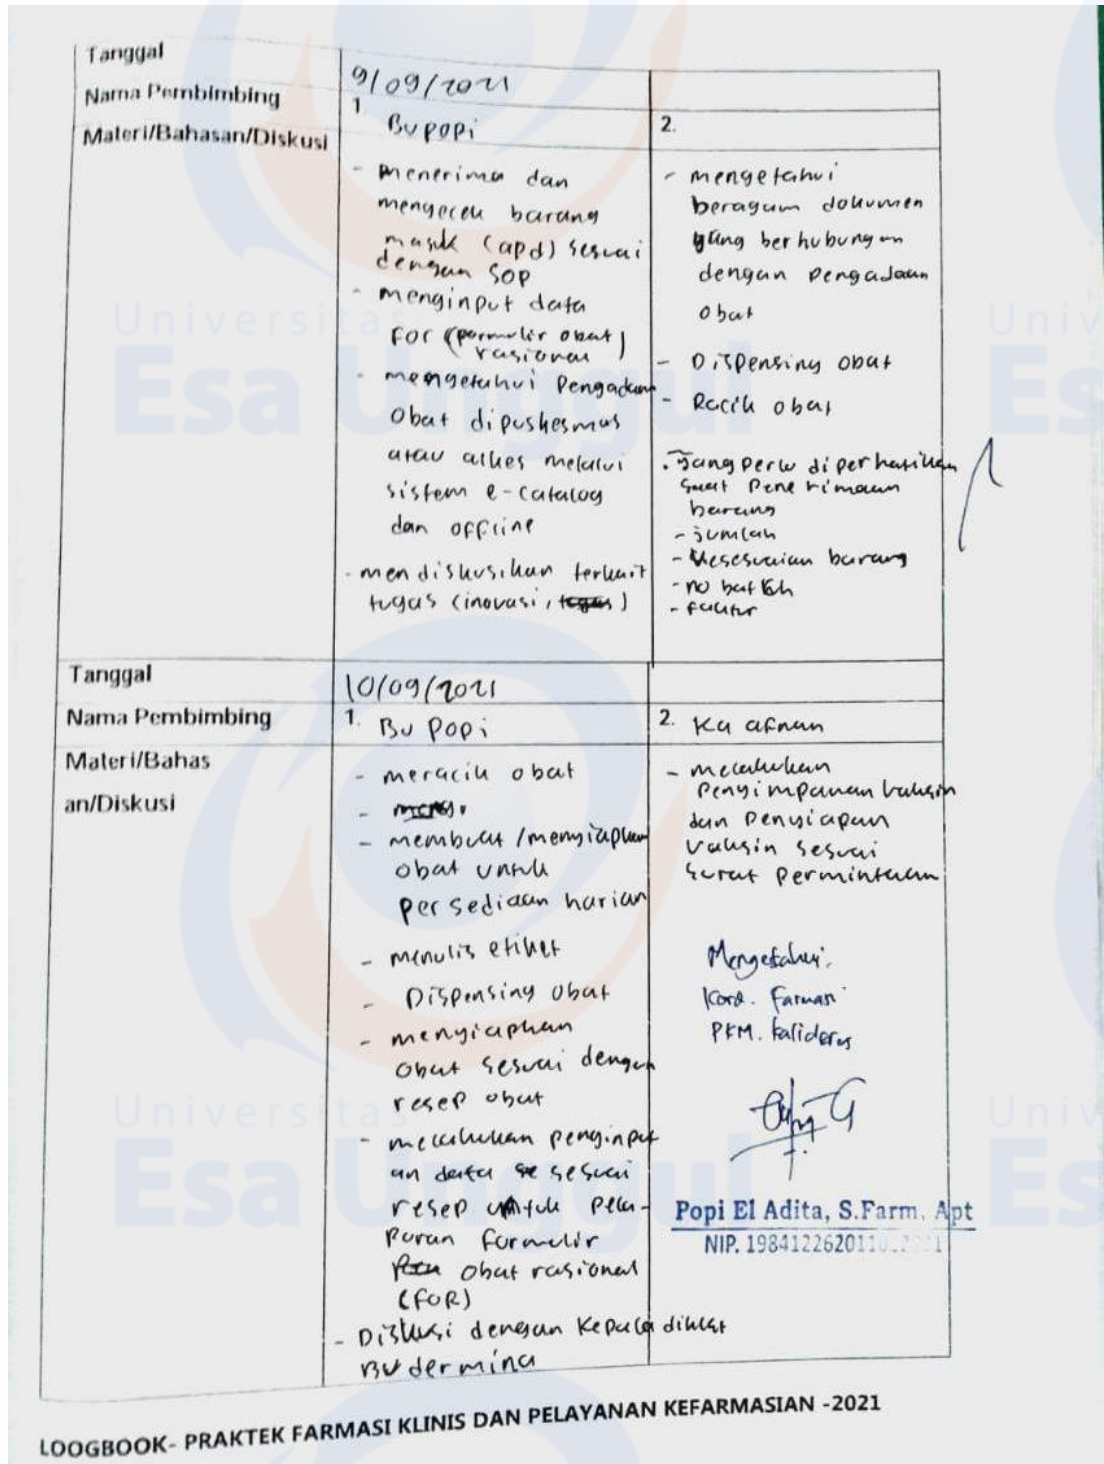 Tanggal
9/09/2021
Nama Pembimbing
1. Bu popi
2.
Materi/Bahasan/Diskusi
- menerima dan
mengecek barang
masuk (apd) sesuai
dengan SOP
- menginput data
FOR (formulir obat
rasional)
- mengetahui Pengadaan
Obat dipuskesmas
atau alkes melalui
sistem e-catalog
dan offline
- mendiskusikan terkait
tugas (inovasi, tugas)
- mengetahui
beragam dokumen
yang berhubungan
dengan pengadaan
obat
- Dispensing obat
- Racik obat
. Yang perlu diperhatikan
saat Penerimaan
barang
- jumlah
- Kesesuaian barang
- no batch
- faktur
Tanggal
10/09/2021
Nama Pembimbing
1. Bu Popi
2. Ka afnan
Materi/Bahas
an/Diskusi
- meracik obat
- membuat /menyiapkan
obat untuk
persediaan harian
- menulis etiket
- Dispensing obat
- menyiapkan
obat sesuai dengan
resep obat
- melakukan penginput
an data se sesuai
resep untuk pela-
poran formulir
obat rasional
(FOR)
- Diskusi dengan Kepala diklat
Bu dermina
- melakukan
Penyimpanan vaksin
dan Penyiapan
vaksin sesuai
surat permintaan
Mengetahui.
Kord. Farmasi
PKM. kalideres
Popi El Adita, S.Farm, Apt
NIP. 198412262011
LOOGBOOK- PRAKTEK FARMASI KLINIS DAN PELAYANAN KEFARMASIAN -2021
Universitas
Esa Unggul
Univ
Es
Universitas
Esa Unggul
Univ
Es